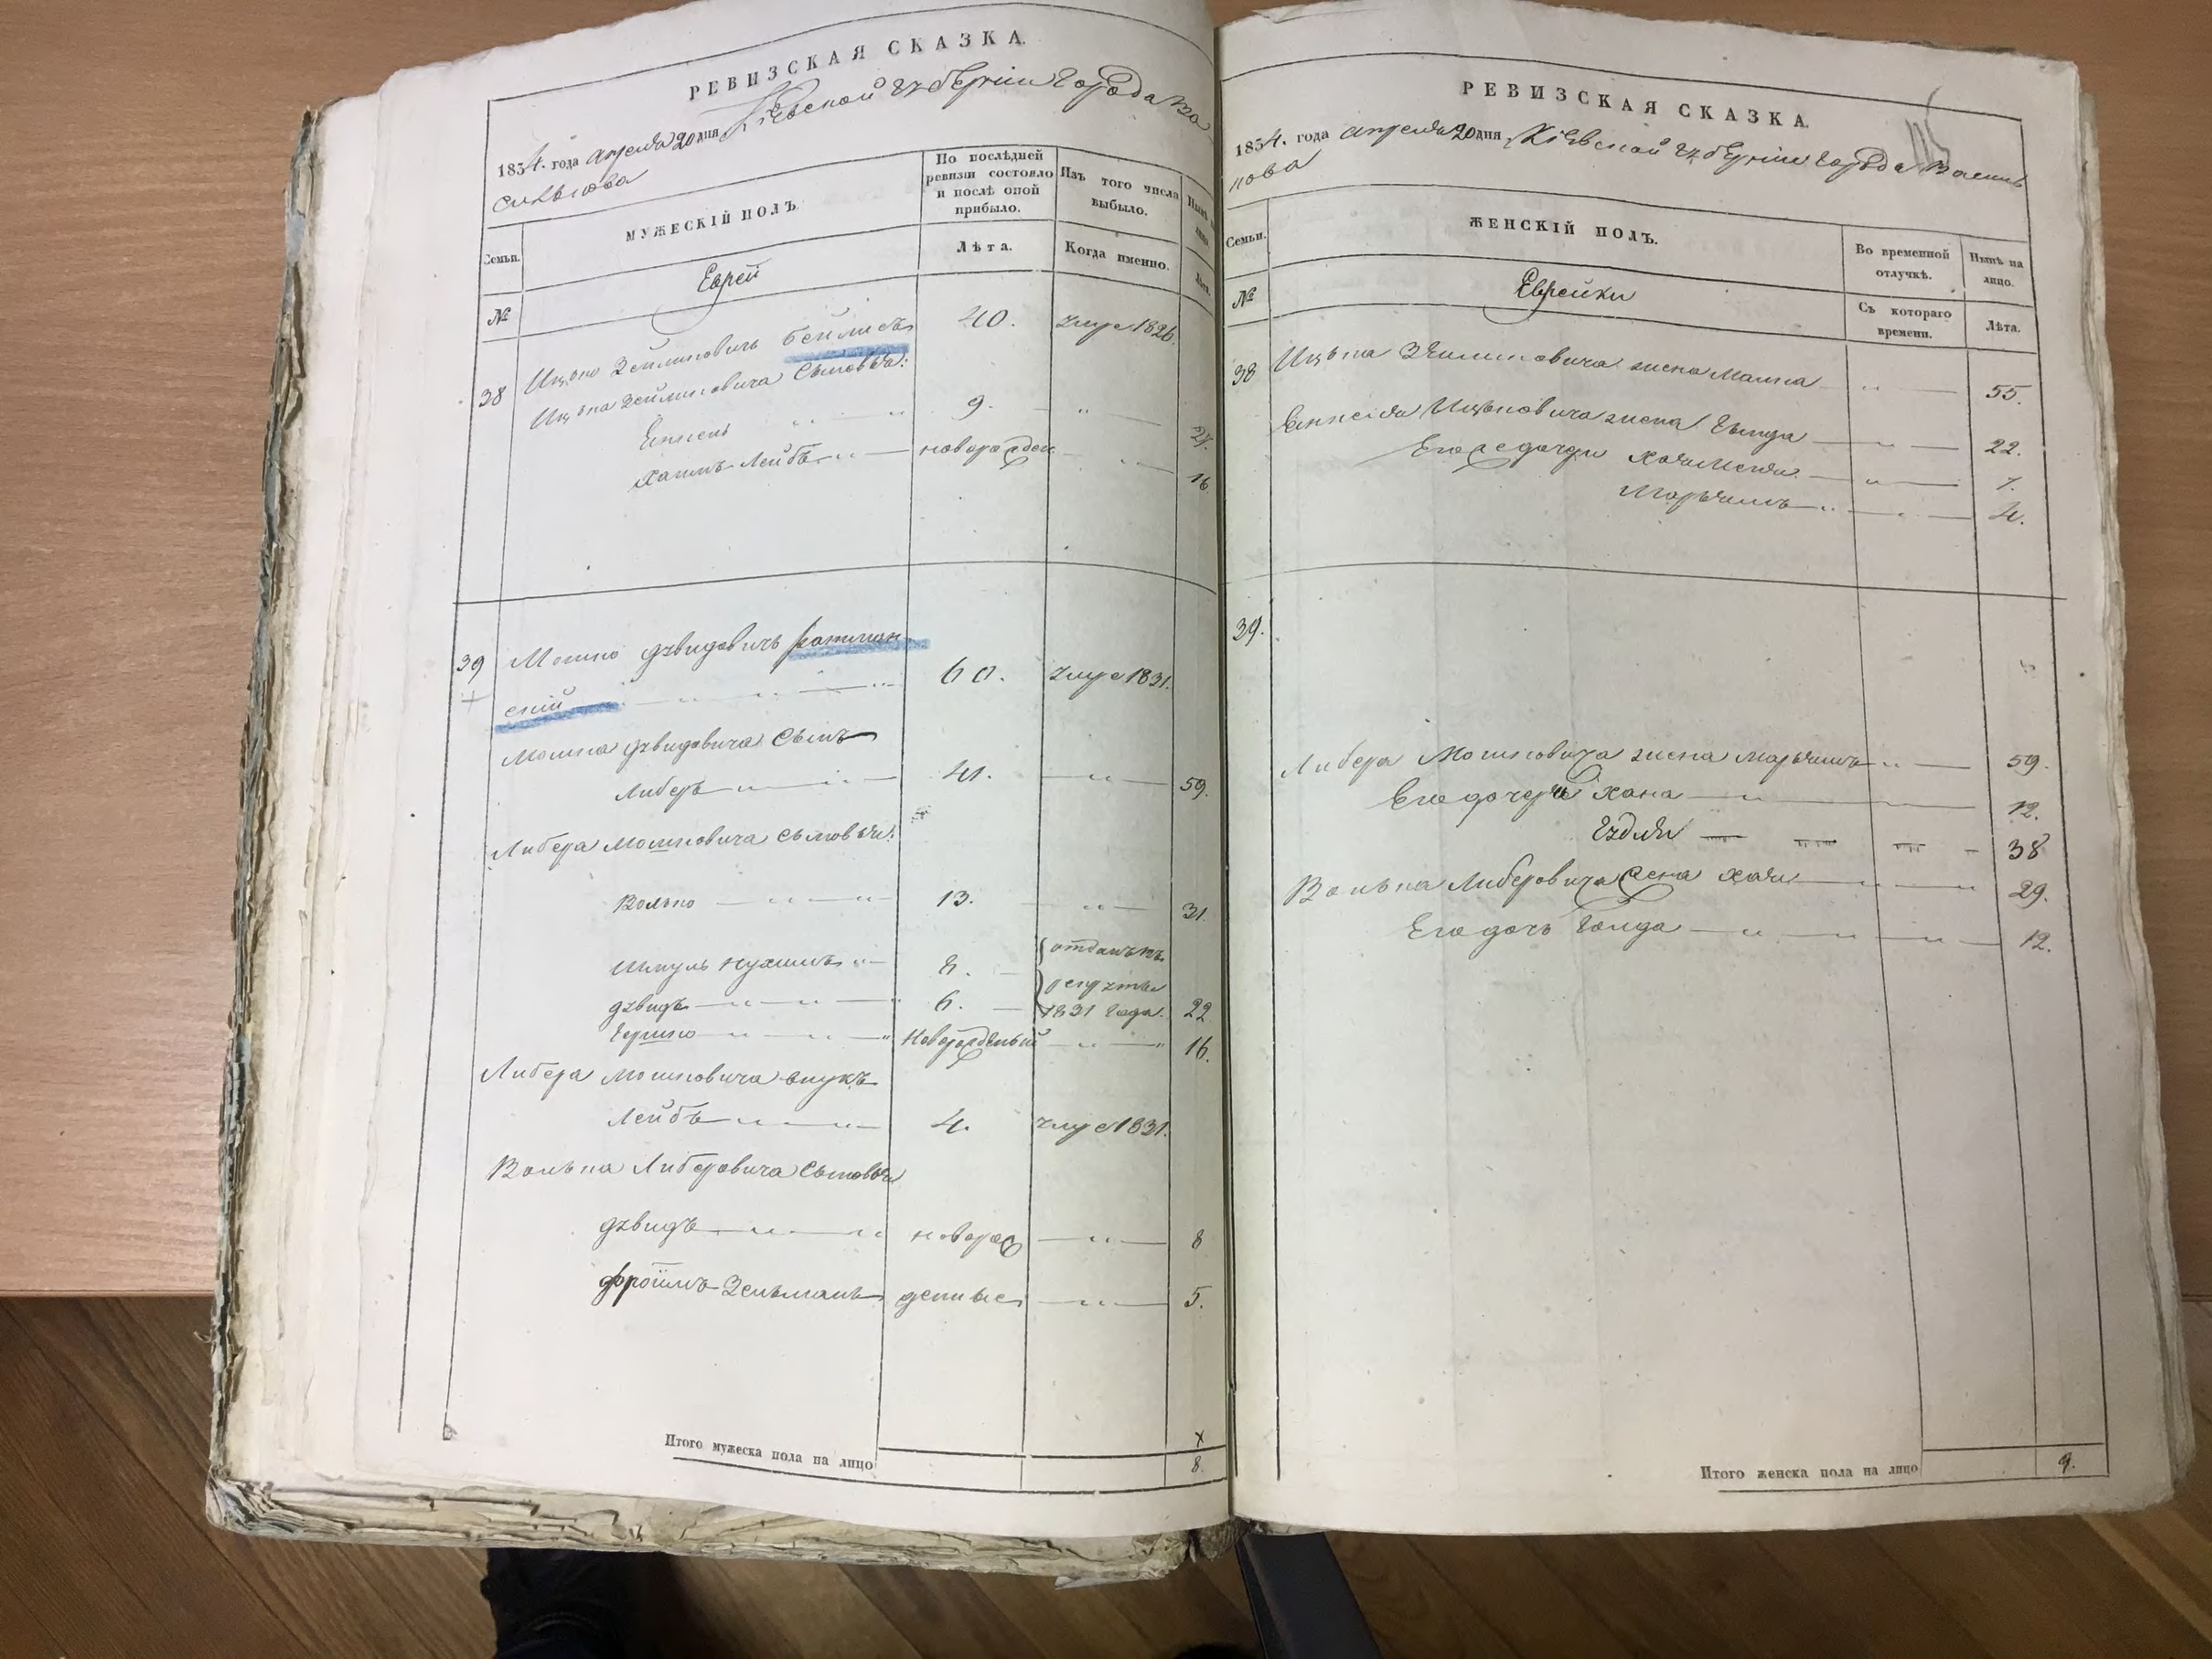 РЕВИЗСКАЯ СКАЗКА.
1834. года апреля 20 дня Кіевской губерніи города Ва
силькова
Семьи.
МУЖЕСКІЙ ПОЛЪ.
По послѣдней ревизіи состояло и послѣ оной прибыло.
Изъ того числа выбыло.
№
Еврей
Лѣта.
Когда именно.
38
Ицько Зейликовичъ Бейлисъ
40.
умре 1826.
Ицька Зейликовича сыновья:
9.
24.
Хаимъ Лейбъ
новорожден
16
39
Мошко Дувидовичъ
скій
60.
умре 1831.
Мошка Дувидовича сынъ
Либеръ
41.
59.
Либера Мошковича сыновья:
Волько
13.
31.
Шмуль Нухимъ
8.
отданъ въ
Дувидъ
6.
рекруты
1831 года.
22
Гершко
Новорожденный
16.
Либера Мошковича внукъ
Лейбъ
4.
умре 1831.
Волька Либеровича сыновья
Дувидъ
новорож
8
Фроимъ Зельманъ
денные
5.
Итого мужеска пола на лицо
8.
РЕВИЗСКАЯ СКАЗКА.
1834. года апреля 20 дня Кіевской губерніи города Василь
кова
Семьи.
ЖЕНСКІЙ ПОЛЪ.
Во временной отлучкѣ.
Нынѣ на лицо.
№
Еврейки
Съ котораго времени.
Лѣта.
38
Ицька Зейликовича жена Малка
55.
Ицьковича жена
22.
Его дочери
1.
Марьямъ
4.
39.
Либера Мошковича жена Марьямъ
59.
Его дочери Хана
12.
38
Волька Либеровича жена Хая
29.
Его дочь Голда
12.
Итого женска пола на лицо
9.